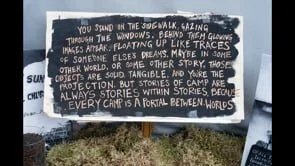 YOU STAND IN THE SIDEWALK, GAZING
THROUGH THE WINDOWS. BEHIND THEM GLOWING
IMAGES APPEAR, FLOATING UP LIKE TRACES
OF SOMEONE ELSE'S DREAMS. MAYBE IN SOME
OTHER WORLD, OR SOME OTHER STORY, THOSE
OBJECTS ARE SOLID, TANGIBLE, AND YOU'RE THE
PROJECTION. BUT STORIES OF CAMP ARE
ALWAYS STORIES WITHIN STORIES
EVERY CAMP IS A PORTAL BETWEEN WORLDS
SUN